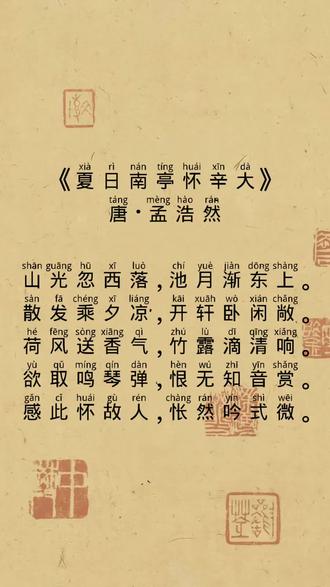 xià rì nán tíng huái xīn dà
《夏日南亭怀辛大》
táng mèng hào rán
唐·孟浩然
shān guāng hū xī luò chí yuè jiàn dōng shàng
山光忽西落,池月渐东上。
sàn fā chéng xī liáng kāi xuān wò xián chǎng
散发乘夕凉,开轩卧闲敞。
hé fēng sòng xiāng qì zhú lù dī qīng xiǎng
荷风送香气,竹露滴清响。
yù qǔ míng qín dàn hèn wú zhī yīn shǎng
欲取鸣琴弹,恨无知音赏。
gǎn cǐ huái gù rén chàng rán yín shì wēi
感此怀故人,怅然吟式微。